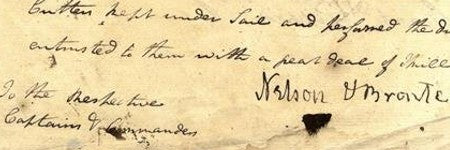 Cutters kept under Sail and performed the du
entrusted to them with a great deal of Skill
Nelson & Bronte
To the Respective
Captains & Commanders